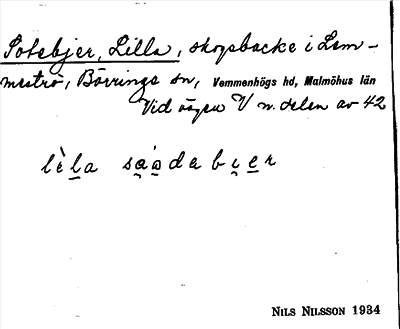 Sotebjer, Lilla, skogsbacke i Lem-
meströ, Börringe sn, Vemmenhögs hd, Malmöhus län
Vid vägen V n. delen av 42
lèla sáadabıer
NILS NILSSON 1934